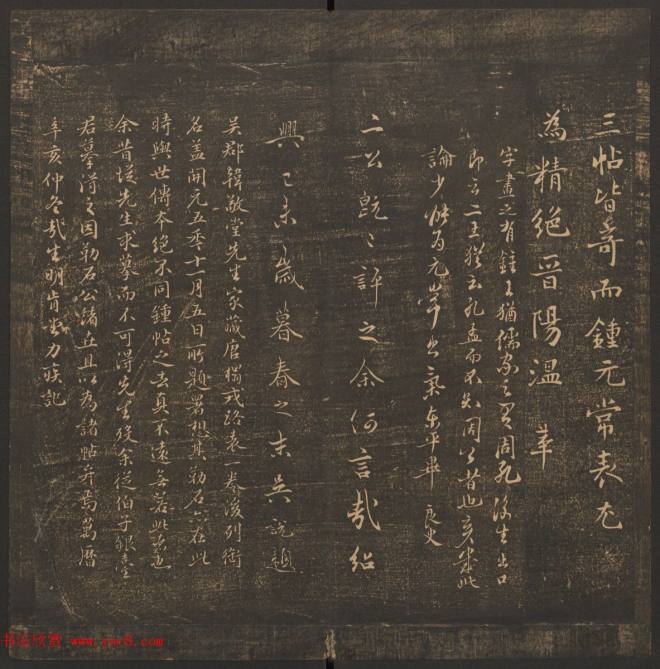 三帖皆奇而鍾元常表尤
為精絕晉陽溫革
字畫之有鍾王猶儒家之有周孔後生出口
即言二王猶玉孔孟而不知周公者也
論少此為元常出
良史
二公既已評之余何言哉紹
興已未歲暮春之末吳說題
吳郡韓敬堂先生家藏唐摹戎路表一卷後列銜
名蓋開元五年十一月五日所題署想其勒石亦在此
時與世傳本絕不同鍾帖之去真不遠每若此
余昔從先生求摹而不可得先生歿余從伯子
君摹得之因勒石公諸且以為諸帖弁焉萬曆
辛亥仲冬哉生明肯堂力疾記
书法欣赏 www.yac8.com